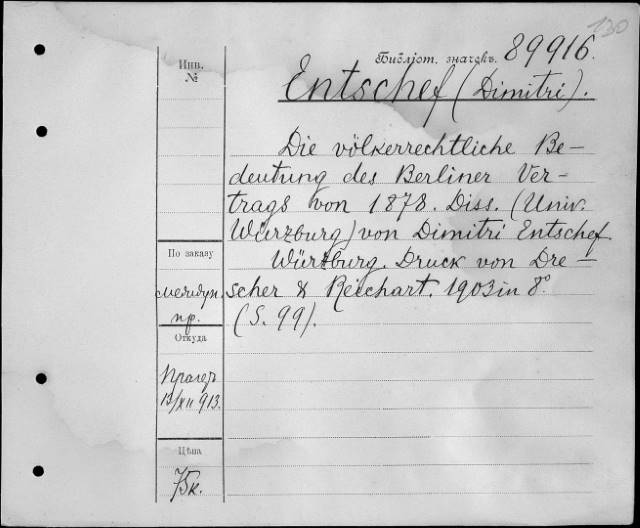 130
Библіот. значекъ. 89916.
Entschef (Dimitri).
Инв.
№
Die völkerrechtliche Be-
deutung des Berliner Ver-
trags von 1878. Diss. (Univ.
Würzburg) von Dimitri Entschef
Würzburg. Druck von Dre-
scher & Reichart. 1903 in 8°
(S. 99).
По заказу
междун.
пр.
Откуда
Прагеръ
13/XII 913.
Цѣна
75к.